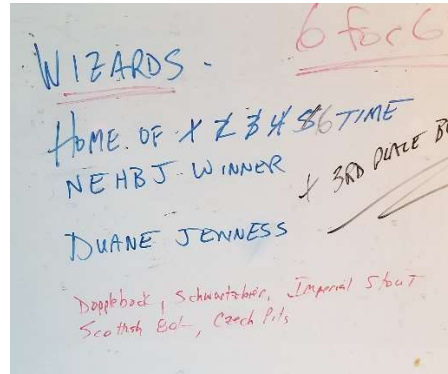 6 for 6
WIZARDS -
HOME OF 1 2 3 4 5 6 TIME
NEHBJ WINNER
+ 3RD PLACE
DUANE JENNESS
Doppleback, Schwartzbier, Imperial Stout
Scottish 80/-, Czech Pils